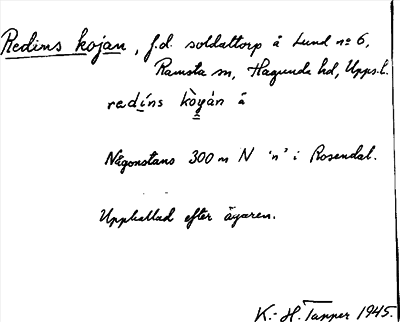 Redins kojan, f.d. soldattorp å Lund nº 6,
Ramsta sn, Hagunda hd, Upps. l.
redíns kòyàn å
Någonstans 300 m N 'n' i Rosendal.
Uppkallad efter ägaren.
K.-H. Tapper 1945.